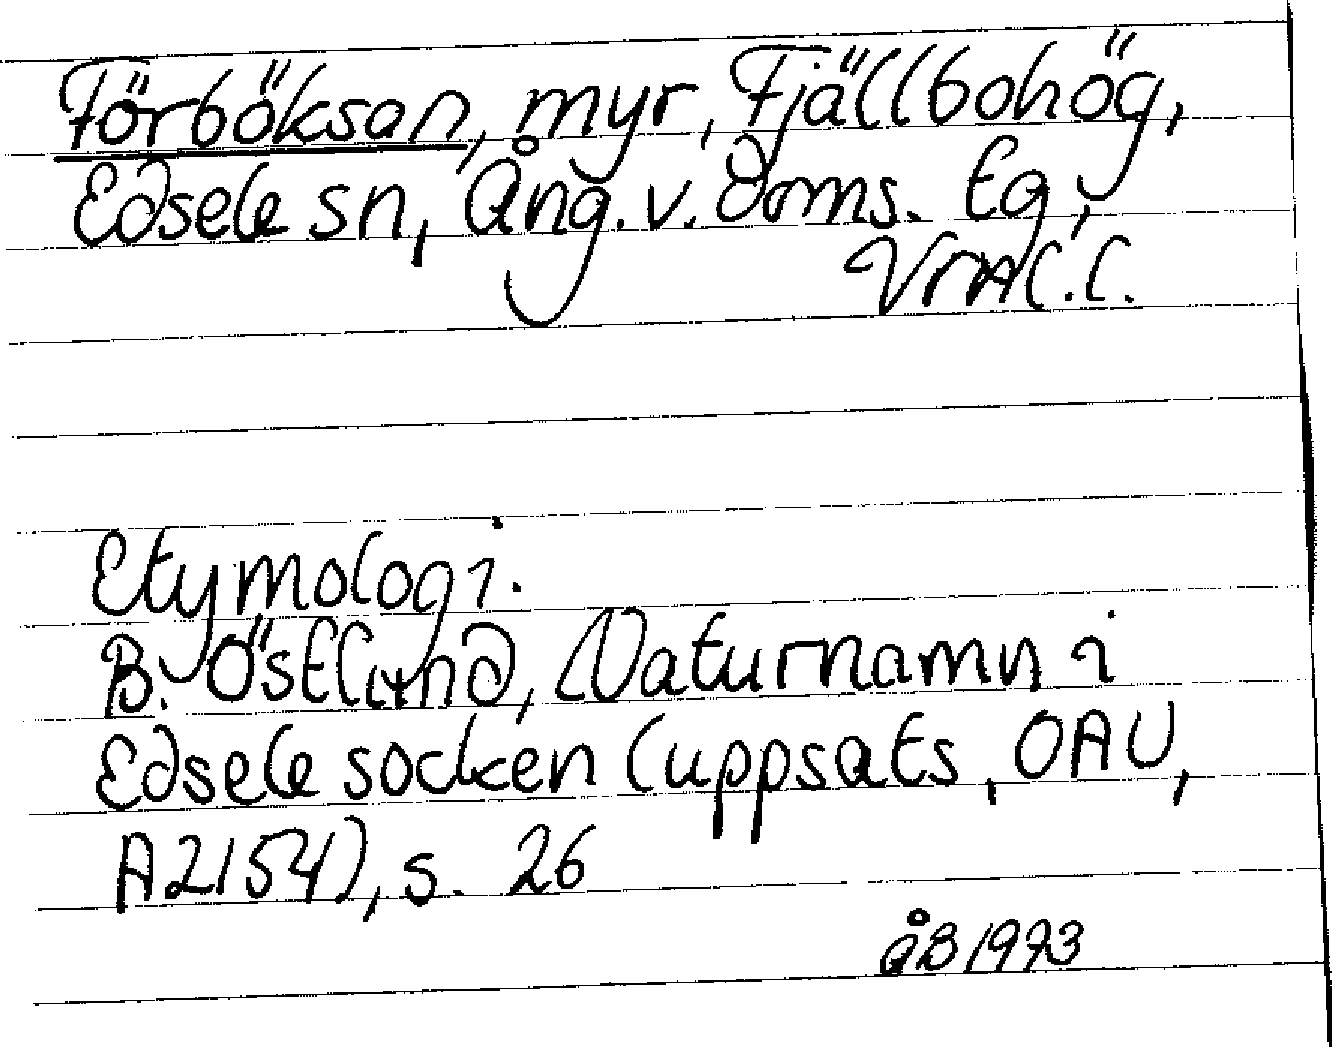 Förböksan, myr, Fjällbohög,
Edsele sn, Ång. v. doms. tg,
Vrml.l.
Etymologi.
B. Östlund, Naturnamn i
Edsele socken (uppsats, OAU,
A2154), s. 26
ÅB 1993